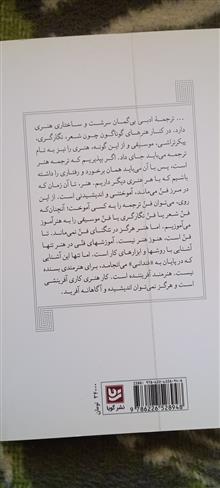 ... ترجمهٔ ادبی بی‌گمان سرشت و ساختاری هنری
دارد. در کنار هنرهای گوناگون چون شعر، نگارگری،
پیکرتراشی، موسیقی و از این گونه، هنری را نیز به نام
ترجمه می‌باید جای داد. اگر بپذیریم که ترجمه هنر
است، پس با آن می‌باید همان برخورد و رفتاری را داشته
باشیم که با هر هنری دیگر داریم. هنر، تا آن زمان که
در مرز فنّ می‌ماند، آموختنی و اندیشیدنی است. از این
روی، می‌توان فنّ ترجمه را به کسی آموخت؛ آنچنان که
فنّ شعر یا فنّ نگارگری یا فنّ موسیقی را به هنرآموز
می‌آموزیم. امّا هنر هرگز در تنگنای فنّ نمی‌ماند. تا
فنّ است، هنوز هنر نیست. آموزشهای فنّی در هنر تنها
آشنایی با روشها و ابزارهای کار است. امّا تنها این آشنایی
که در پایان به «فندانی» می‌انجامد، برای هنرمندی بسنده
نیست. هنرمند آفریننده است. کار هنری کاری آفرینشی
است و هرگز نمی‌توان اندیشیده و آگاهانه آفرید.
نشر گویا
۳۴۰۰۰ تومان
9 786226 528948